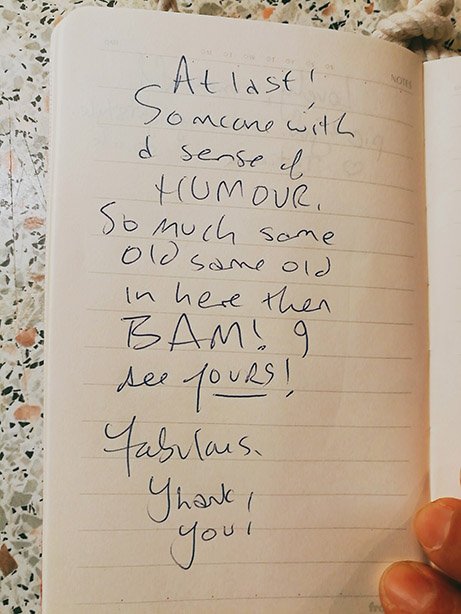 NOTES
At last!
Someone with
a sense of
HUMOUR.
So much same
old same old
in here then
BAM! I
see YOURS!
Fabulous.
Thank
you!